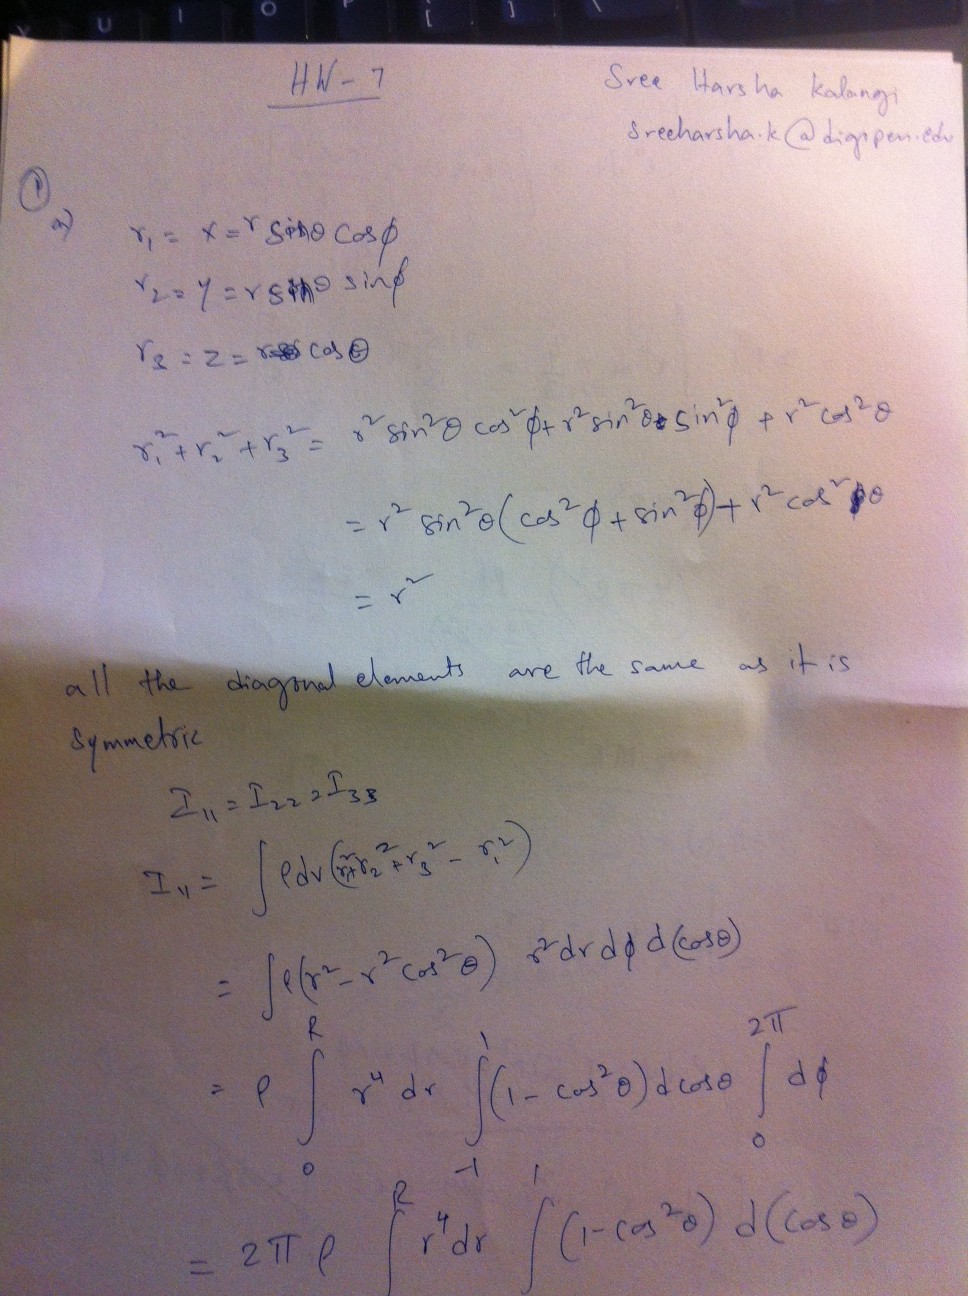 HW-7
Sree Harsha Kalangi
sreeharsha.k@digipen.edu
①
a)
r₁ = x = r sinθ cosϕ
r₂ = y = r sinθ sinϕ
r₃ = z = r cosθ
r₁² + r₂² + r₃² = r² sin²θ cos²ϕ + r² sin²θ sin²ϕ + r² cos²θ
= r² sin²θ (cos²ϕ + sin²ϕ) + r² cos²θ
= r²
all the diagonal elements are the same as it is
symmetric
I₁₁ = I₂₂ = I₃₃
I₁₁ = ∫ρdv(r₁²+r₂²+r₃² - r₁²)
= ∫ρ(r² - r² cos²θ) r² dr dϕ d(cosθ)
= ρ ∫₀ᴿ r⁴ dr ∫₋₁¹ (1 - cos²θ) d cosθ ∫₀²ᴨ dϕ
= 2π ρ ∫ᴿ r⁴ dr ∫¹ (1-cos²θ) d(cosθ)